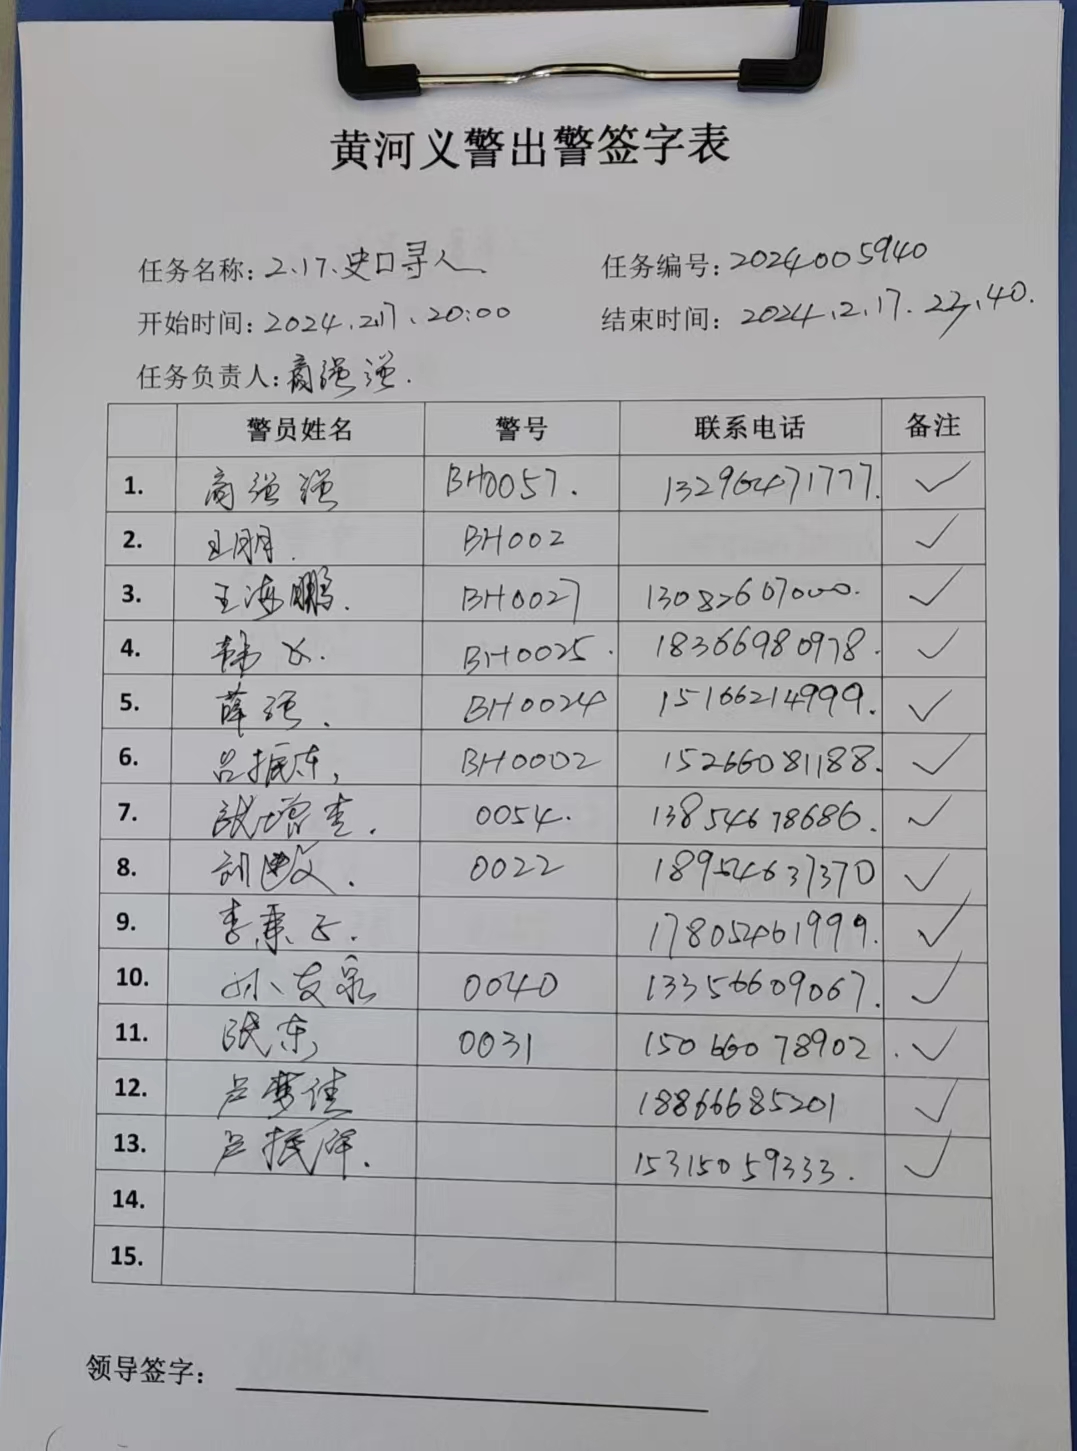 黄河义警出警签字表
任务名称:2.17.史口寻人. 任务编号:2024005940
开始时间:2024.2.17.20:00 结束时间:2024.2.17.22.40.
任务负责人:商强强.
警员姓名 警号 联系电话 备注
1. 商强强 BH0057. 13296471777. ✓
2. 王朋. BH002 ✓
3. 王海鹏. BH0027 13082607000. ✓
4. 韩义. BH0025. 18366980978. ✓
5. 薛强. BH0024 15166214999. ✓
6. 吕振东, BH0002 15266081188. ✓
7. 张增吉. 0054. 13854678686. ✓
8. 0022 18954637370 ✓
9. 李秉正. 17805461999. ✓
10. 孙友泉 0040 13356609067. ✓
11. 张东 0031 15066078902. ✓
12. 卢梦佳 18866685201 ✓
13. 15315059333. ✓
14.
15.
领导签字: